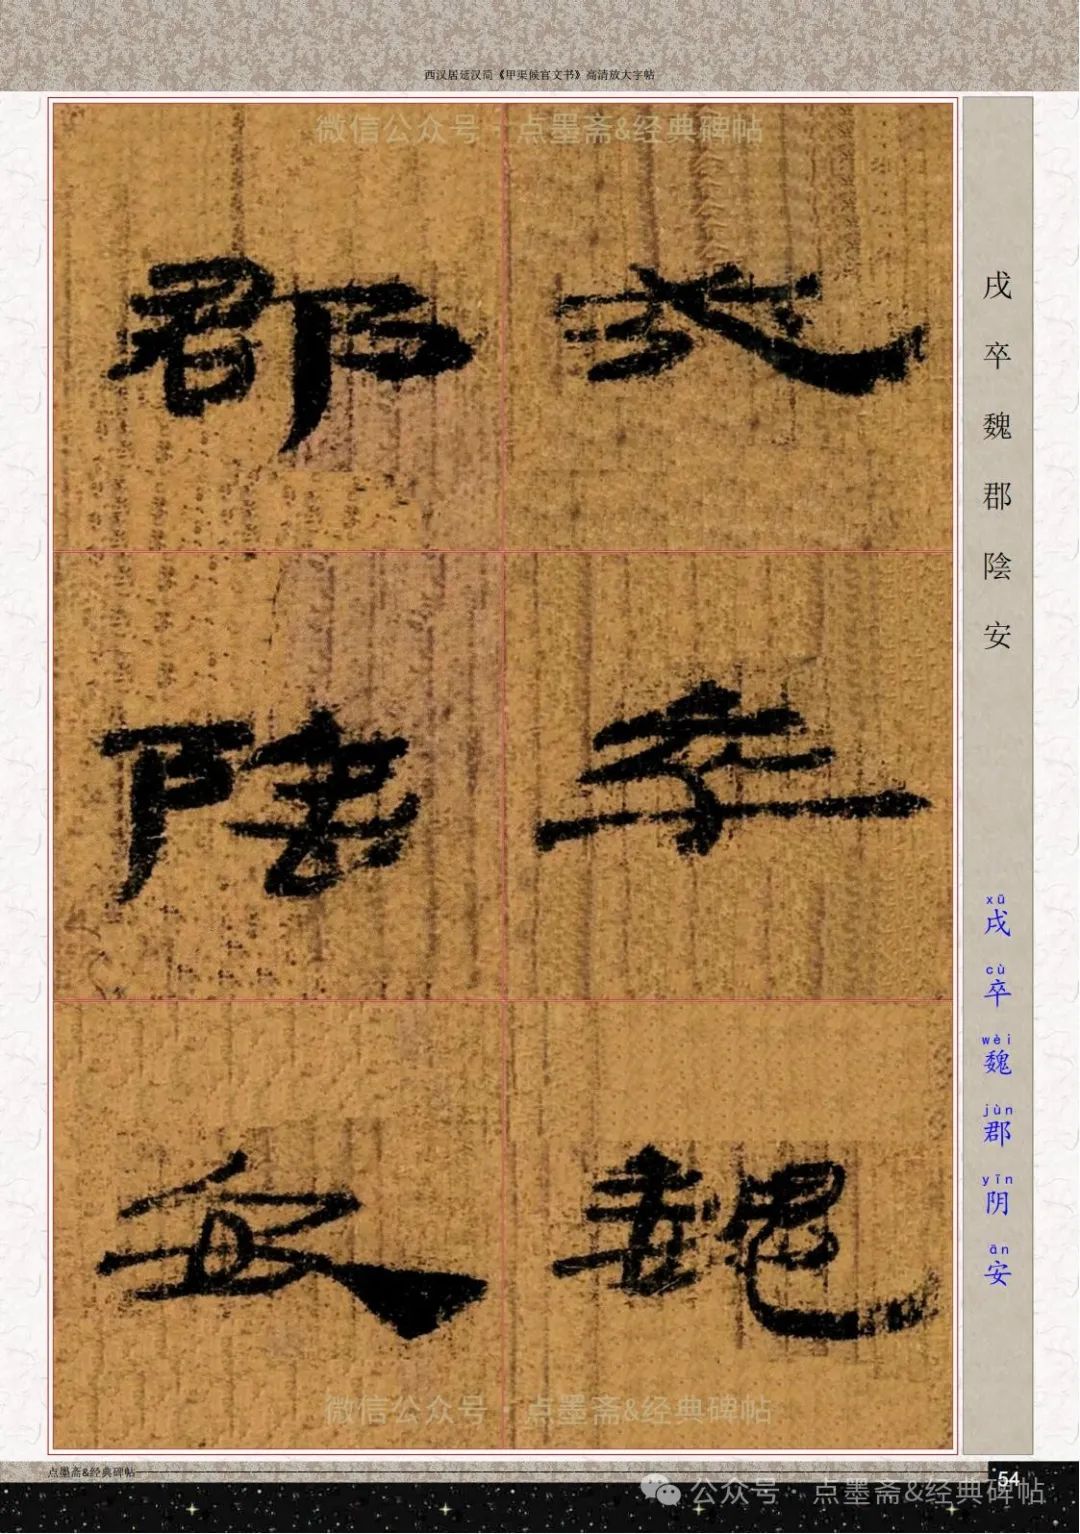 西汉居延汉简《甲渠候官文书》高清放大字帖
微信公众号·点墨斋&经典碑帖
戌卒魏
郡陰安
戌卒魏郡陰安
xū cù wèi jùn yīn ān
戌卒魏郡阴安
微信公众号·点墨斋&经典碑帖
点墨斋&经典碑帖
54
公众号·点墨斋&经典碑帖